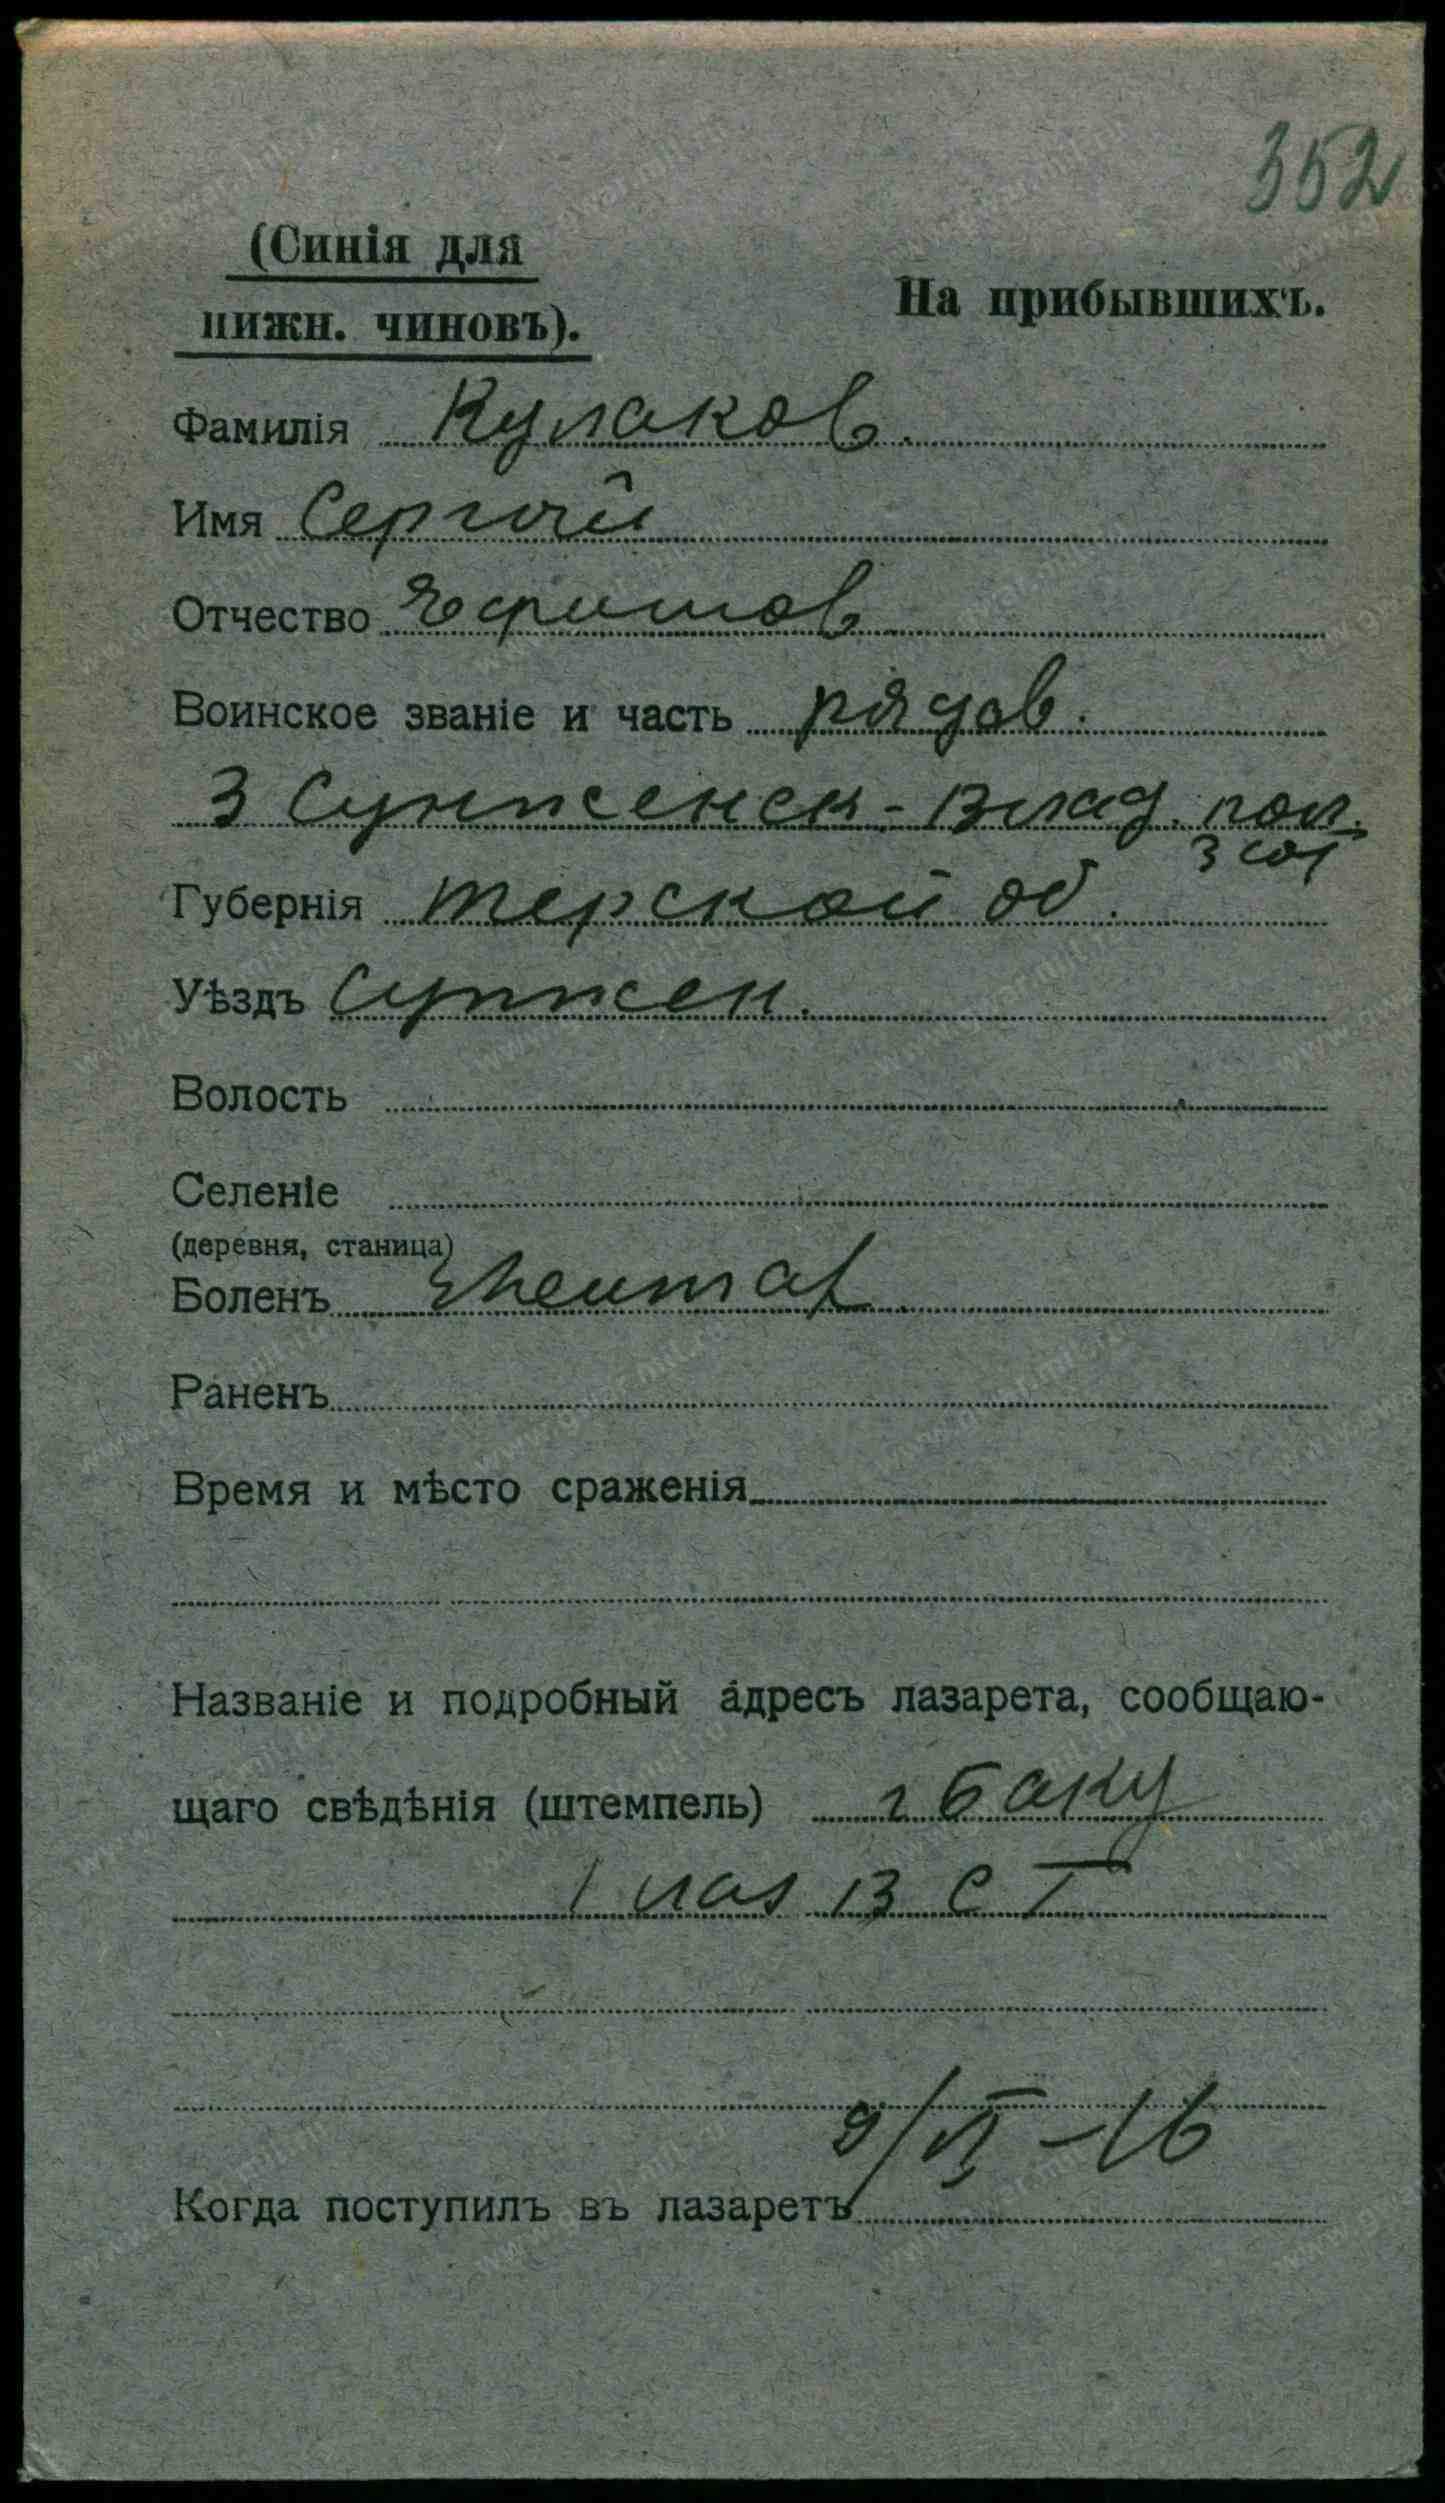 352
(Синія для
нижн. чиновъ).
На прибывшихъ.
Фамилія Кулаков.
Имя Сергѣй
Отчество Ефимов
Воинское званіе и часть рядов.
3 Сунженск-Влад. пол.
3 сот
Губернія Терской об.
Уѣздъ Сунжен.
Волость
Селеніе
(деревня, станица)
Боленъ Rheumat
Раненъ
Время и мѣсто сраженія
Названіе и подробный адресъ лазарета, сообщаю-
щаго свѣдѣнія (штемпель) г Баку
1 лаз В С Г
9/VI -16
Когда поступилъ въ лазаретъ